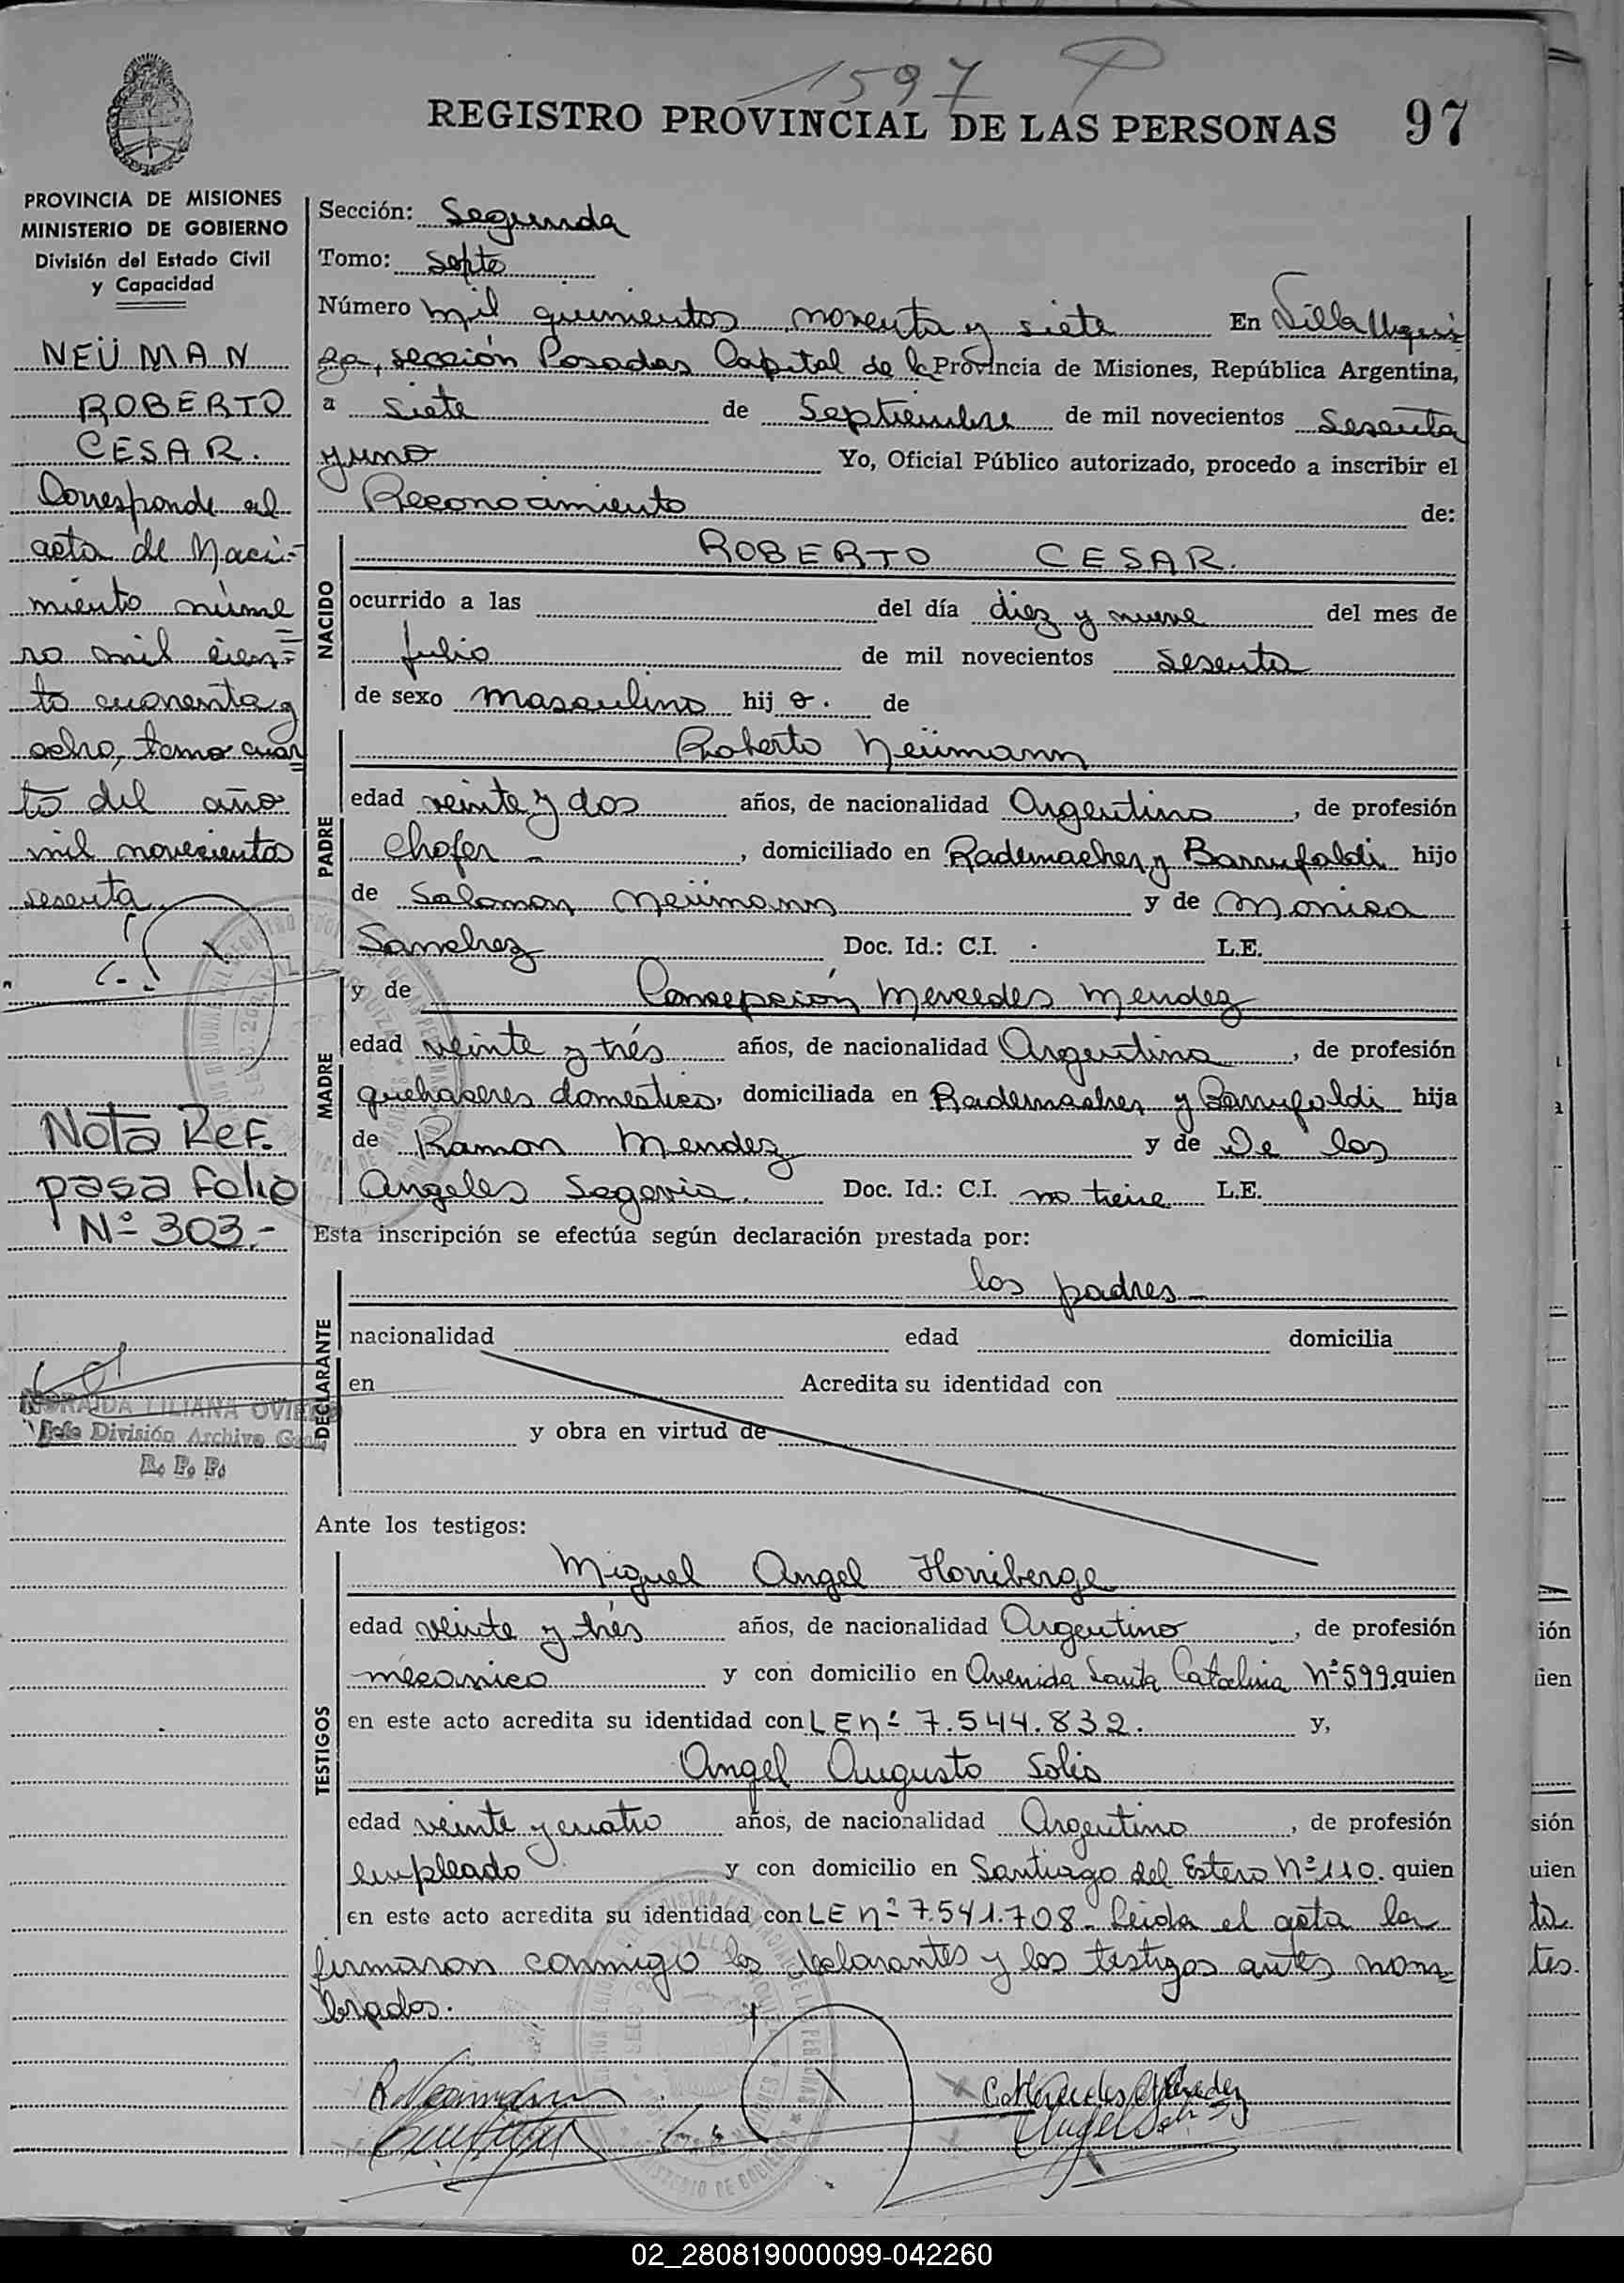 1597
REGISTRO PROVINCIAL DE LAS PERSONAS 97
PROVINCIA DE MISIONES
MINISTERIO DE GOBIERNO
División del Estado Civil
y Capacidad
NEÜMAN
ROBERTO
CESAR.
Corresponde al
acta de Naci-
miento núme
ro mil cien=
to cuarenta y
ocho, tomo cuar
to del año
mil novecientos
sesenta
Nota Ref.
pasa folio
Nº 303.-
NORAIDA LILIANA
Jefe División Archivo Gral
R. P. P.
Sección: Segunda
Tomo: Septo
Número mil quinientos noventa y siete En Villa Urqui
za, sección Posadas Capital de la Provincia de Misiones, República Argentina,
a siete de Septiembre de mil novecientos sesenta
y uno Yo, Oficial Público autorizado, procedo a inscribir el
Reconocimiento de:
NACIDO
ROBERTO CESAR.
ocurrido a las del día diez y nueve del mes de
julio de mil novecientos sesenta
de sexo masculino hij o. de
PADRE
Roberto Neümann
edad veinte y dos años, de nacionalidad Argentino, de profesión
Chofer -, domiciliado en Rademacher y Barrufaldi hijo
de Salomon Neümann y de Monica
Sanchez Doc. Id.: C.I. L.E.
MADRE
y de Concepción Mercedes Mendez
edad veinte y trés años, de nacionalidad Argentina, de profesión
quehaceres domestico, domiciliada en Rademacher y Barrufaldi hija
de Ramon Mendez y de De los
Angeles Segovia. Doc. Id.: C.I. no tiene L.E.
Esta inscripción se efectúa según declaración prestada por:
DECLARANTE
los padres
nacionalidad edad domicilia
en Acredita su identidad con
y obra en virtud de
Ante los testigos:
TESTIGOS
Miguel Angel Horriberge
edad veinte y trés años, de nacionalidad Argentino, de profesión
mécanico y con domicilio en Avenida Santa Catalina Nº 599. quien
en este acto acredita su identidad con LE nº 7.544.832. y,
Angel Augusto Solis
edad veinte y cuatro años, de nacionalidad Argentino, de profesión
empleado y con domicilio en Santiago del Estero Nº 110. quien
en este acto acredita su identidad con LE nº 7.541.708. Leida el acta la
firmaron conmigo los declarantes y los testigos antes nom=
brados.
R. Neümann
C. Mercedes Mendez
02_280819000099-042260